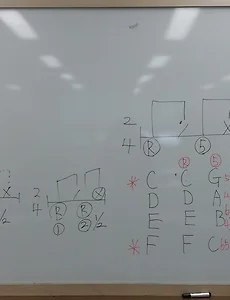 2
4 R 5
R 5
* C C G
D D A
E E B
* F F C
2
4 R R X
1 2 1/2
X
1/2